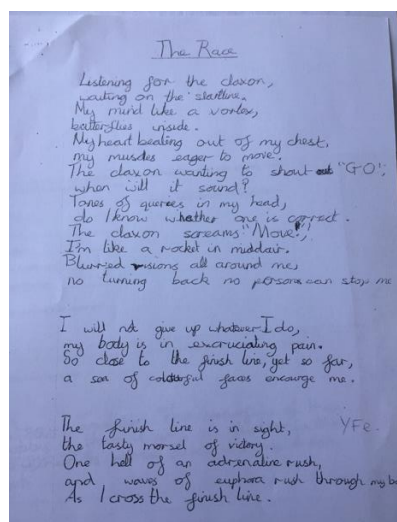 The Race
Listening for the claxon,
waiting on the startline.
My mind like a vortex,
butterflies inside.
My heart beating out of my chest,
my muscles eager to move.
The claxon wanting to shout "GO!",
when will it sound?
Tones of queries in my head,
do I know whather one is correct.
The claxon screams "Move!",
I'm like a rocket in middair.
Blurried visions all around me,
no turning back no person can stop me
I will not give up whatever I do,
my body is in excruciating pain.
So close to the finish line, yet so far,
a sea of colourful faces encourge me.
The finish line is in sight, YFe.
the tasty morsel of victory.
One hell of an adrenaline rush,
and waves of euphora rush through my bo
As I cross the finish line.